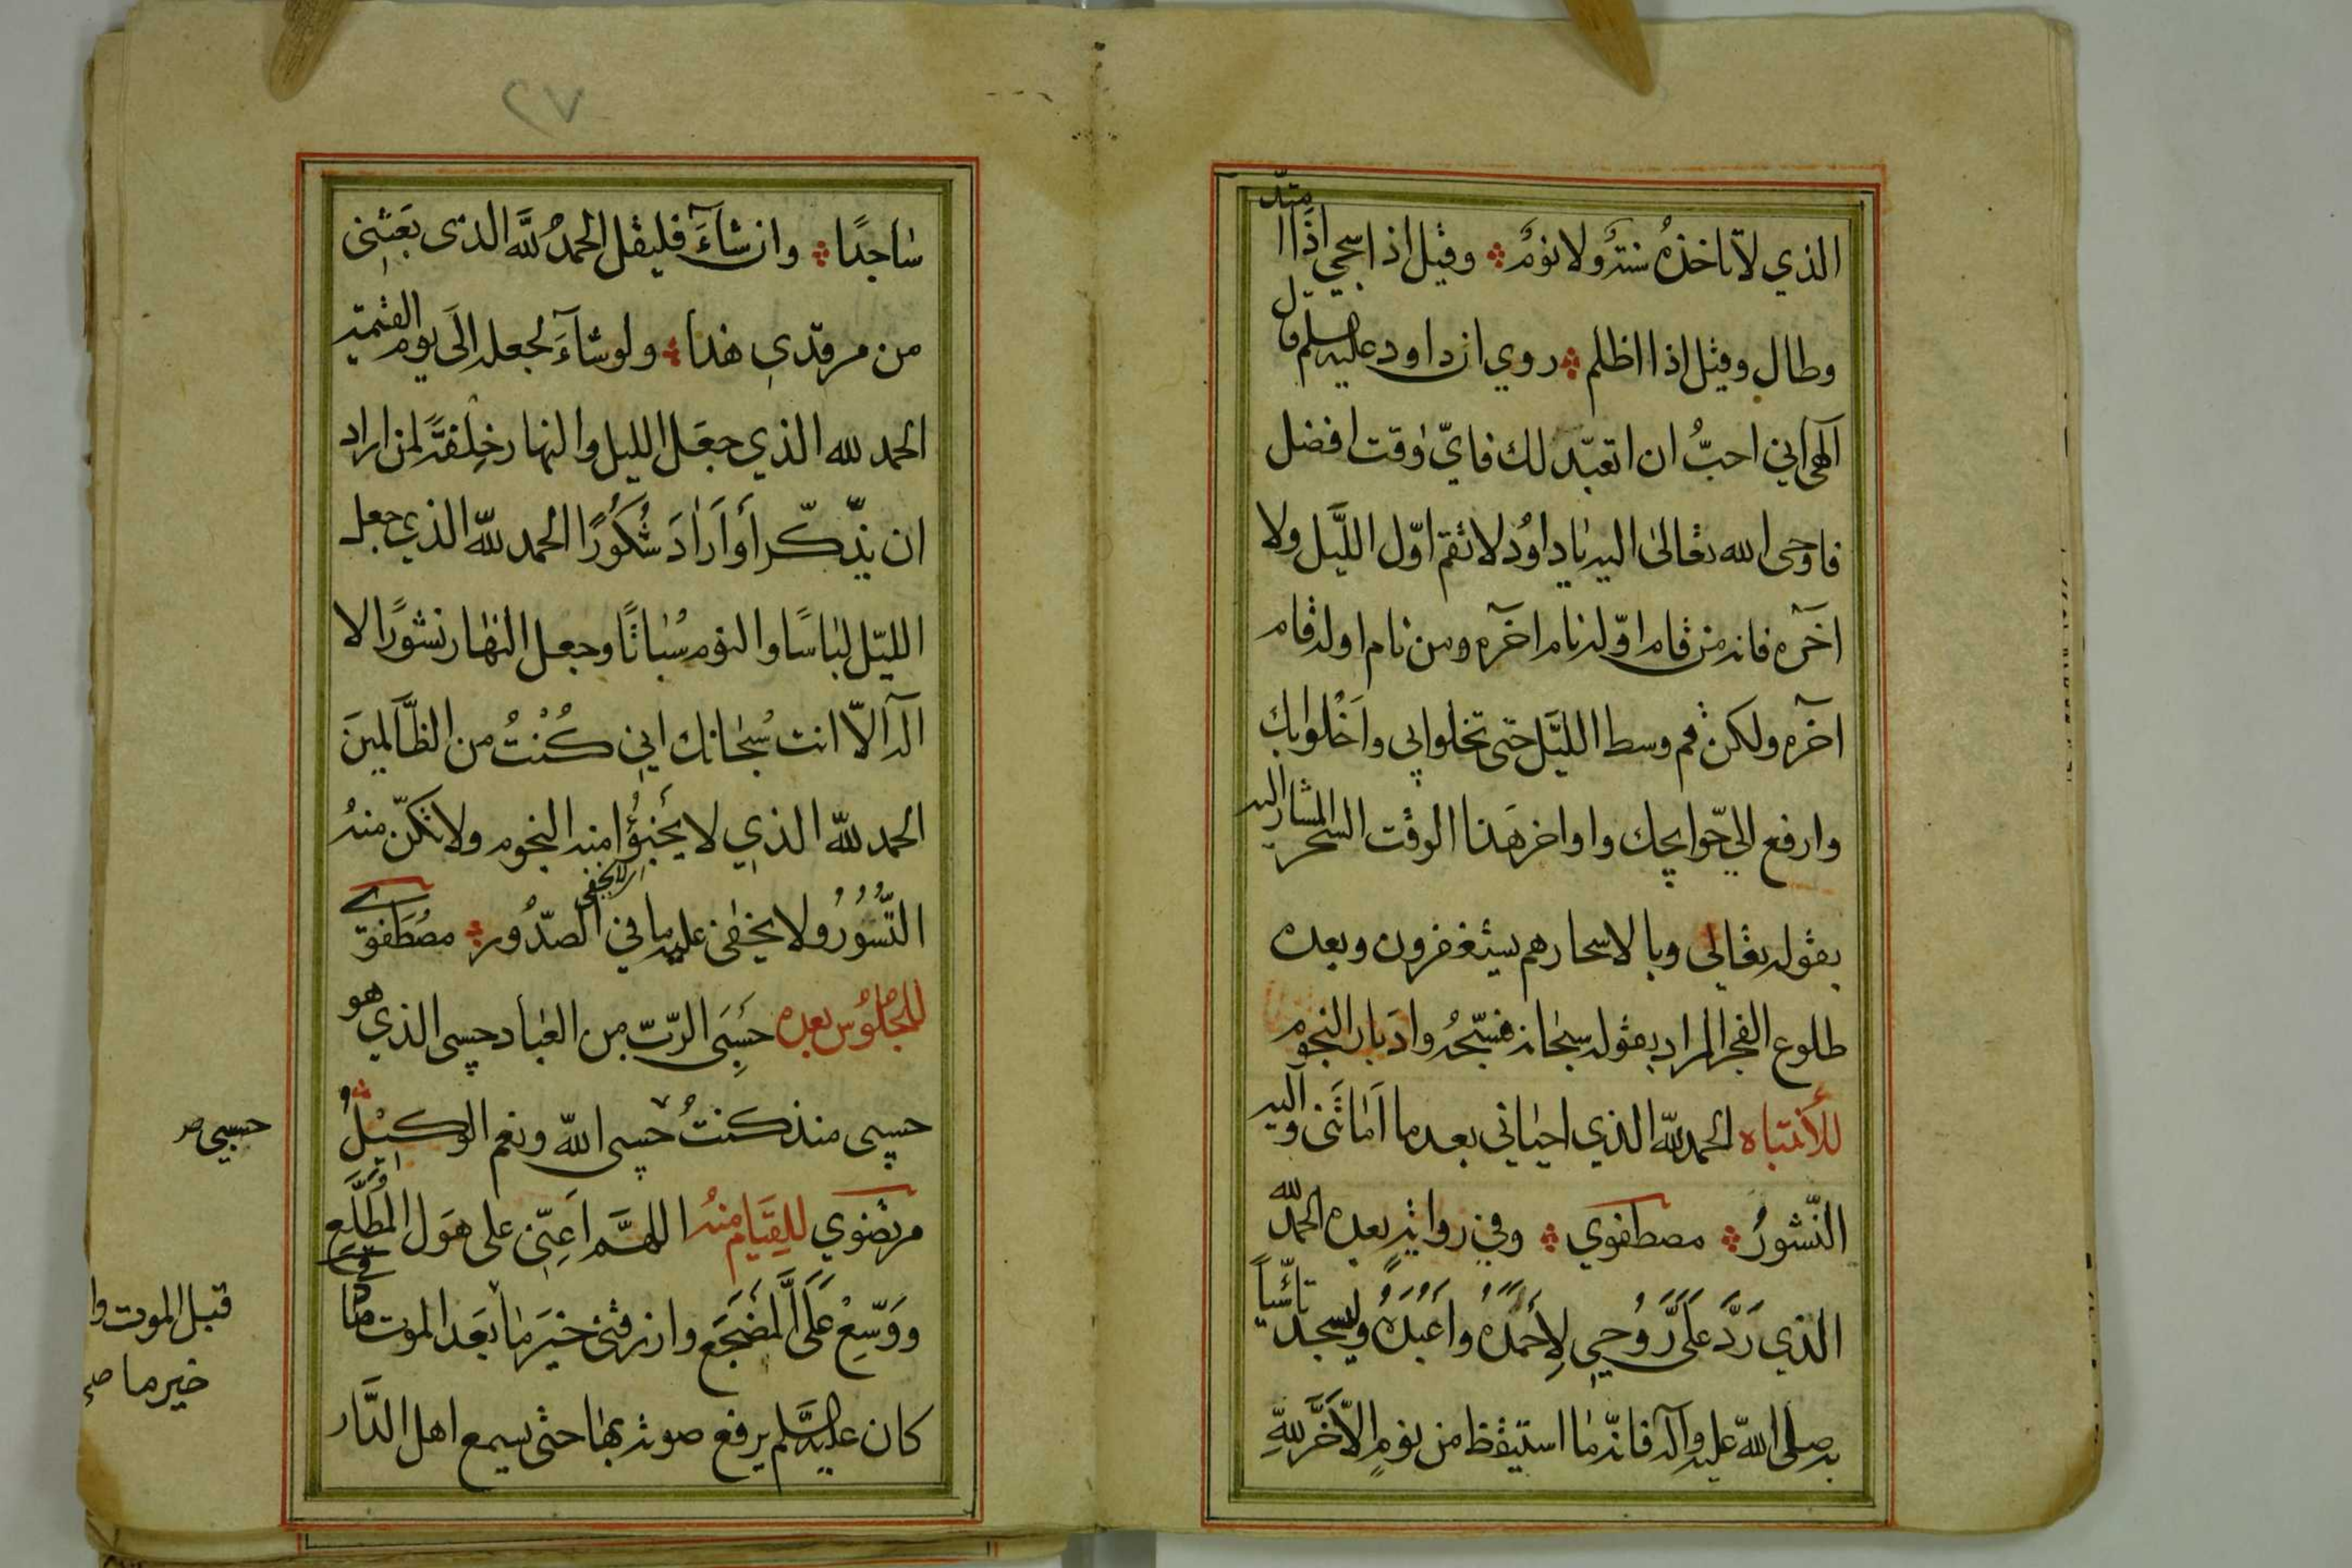 الذي لا تاخذه سنة ولا نوم وقيل اذا سجى اذا امتد
وطال وقيل اذا اظلم روي ان داود عليه السلم قال
الهي اني احب ان اتعبد لك فاي وقت افضل
فاوحى الله تعالى اليه يا داود لا تقم اول الليل ولا
اخره فانه من قام اوله نام اخره ومن نام اوله قام
اخره ولكن قم وسط الليل حتى تخلوا بي واخلوا بك
وارفع الي حوايجك واواخر هذا الوقت السحر المشار اليه
بقوله تعالى وبالاسحار هم يستغفرون وبعده
طلوع الفجر المراد بقوله سبحانه فسبحه وادبار النجوم
للأنتباه الحمد لله الذي احياني بعد ما اماتني واليه
النشور مصطفوي وفي رواية بعده الحمد لله
الذي رد علي روحي لأحمده واعبده وليسجد تاسيا
به صلى الله عليه وآله فانه ما استيقظ من نوم الا خر لله
٢٧
ساجدا وان شاء فليقل الحمد لله الذي بعثني
من مرقدي هذا ولو شاء لجعله الى يوم القيمة
الحمد لله الذي جعل الليل والنهار خلفة لمن اراد
ان يذكر أو اراد شكورا الحمد لله الذي جعل
الليل لباسا والنوم سباتا وجعل النهار نشورا لا
اله الا انت سبحانك اني كنت من الظالمين
الحمد لله الذي لا يخبؤا منه النجوم ولا تكن منه
الستور ولا يخفى عليه ما في الصدور مصطفوي
للجلوس بعده حسبي الرب من العباد حسبي الذي هو
حسبي منذ كنت حسبي الله ونعم الوكيل
مرتضوي للقيام منه اللهم اعني على هول المطلع
ووسع علي المضجع وارزقني خير ما بعد الموت
كان عليه السلم يرفع صوته بها حتى يسمع اهل الدار
حسبي صر
قبل الموت وا
خير ما